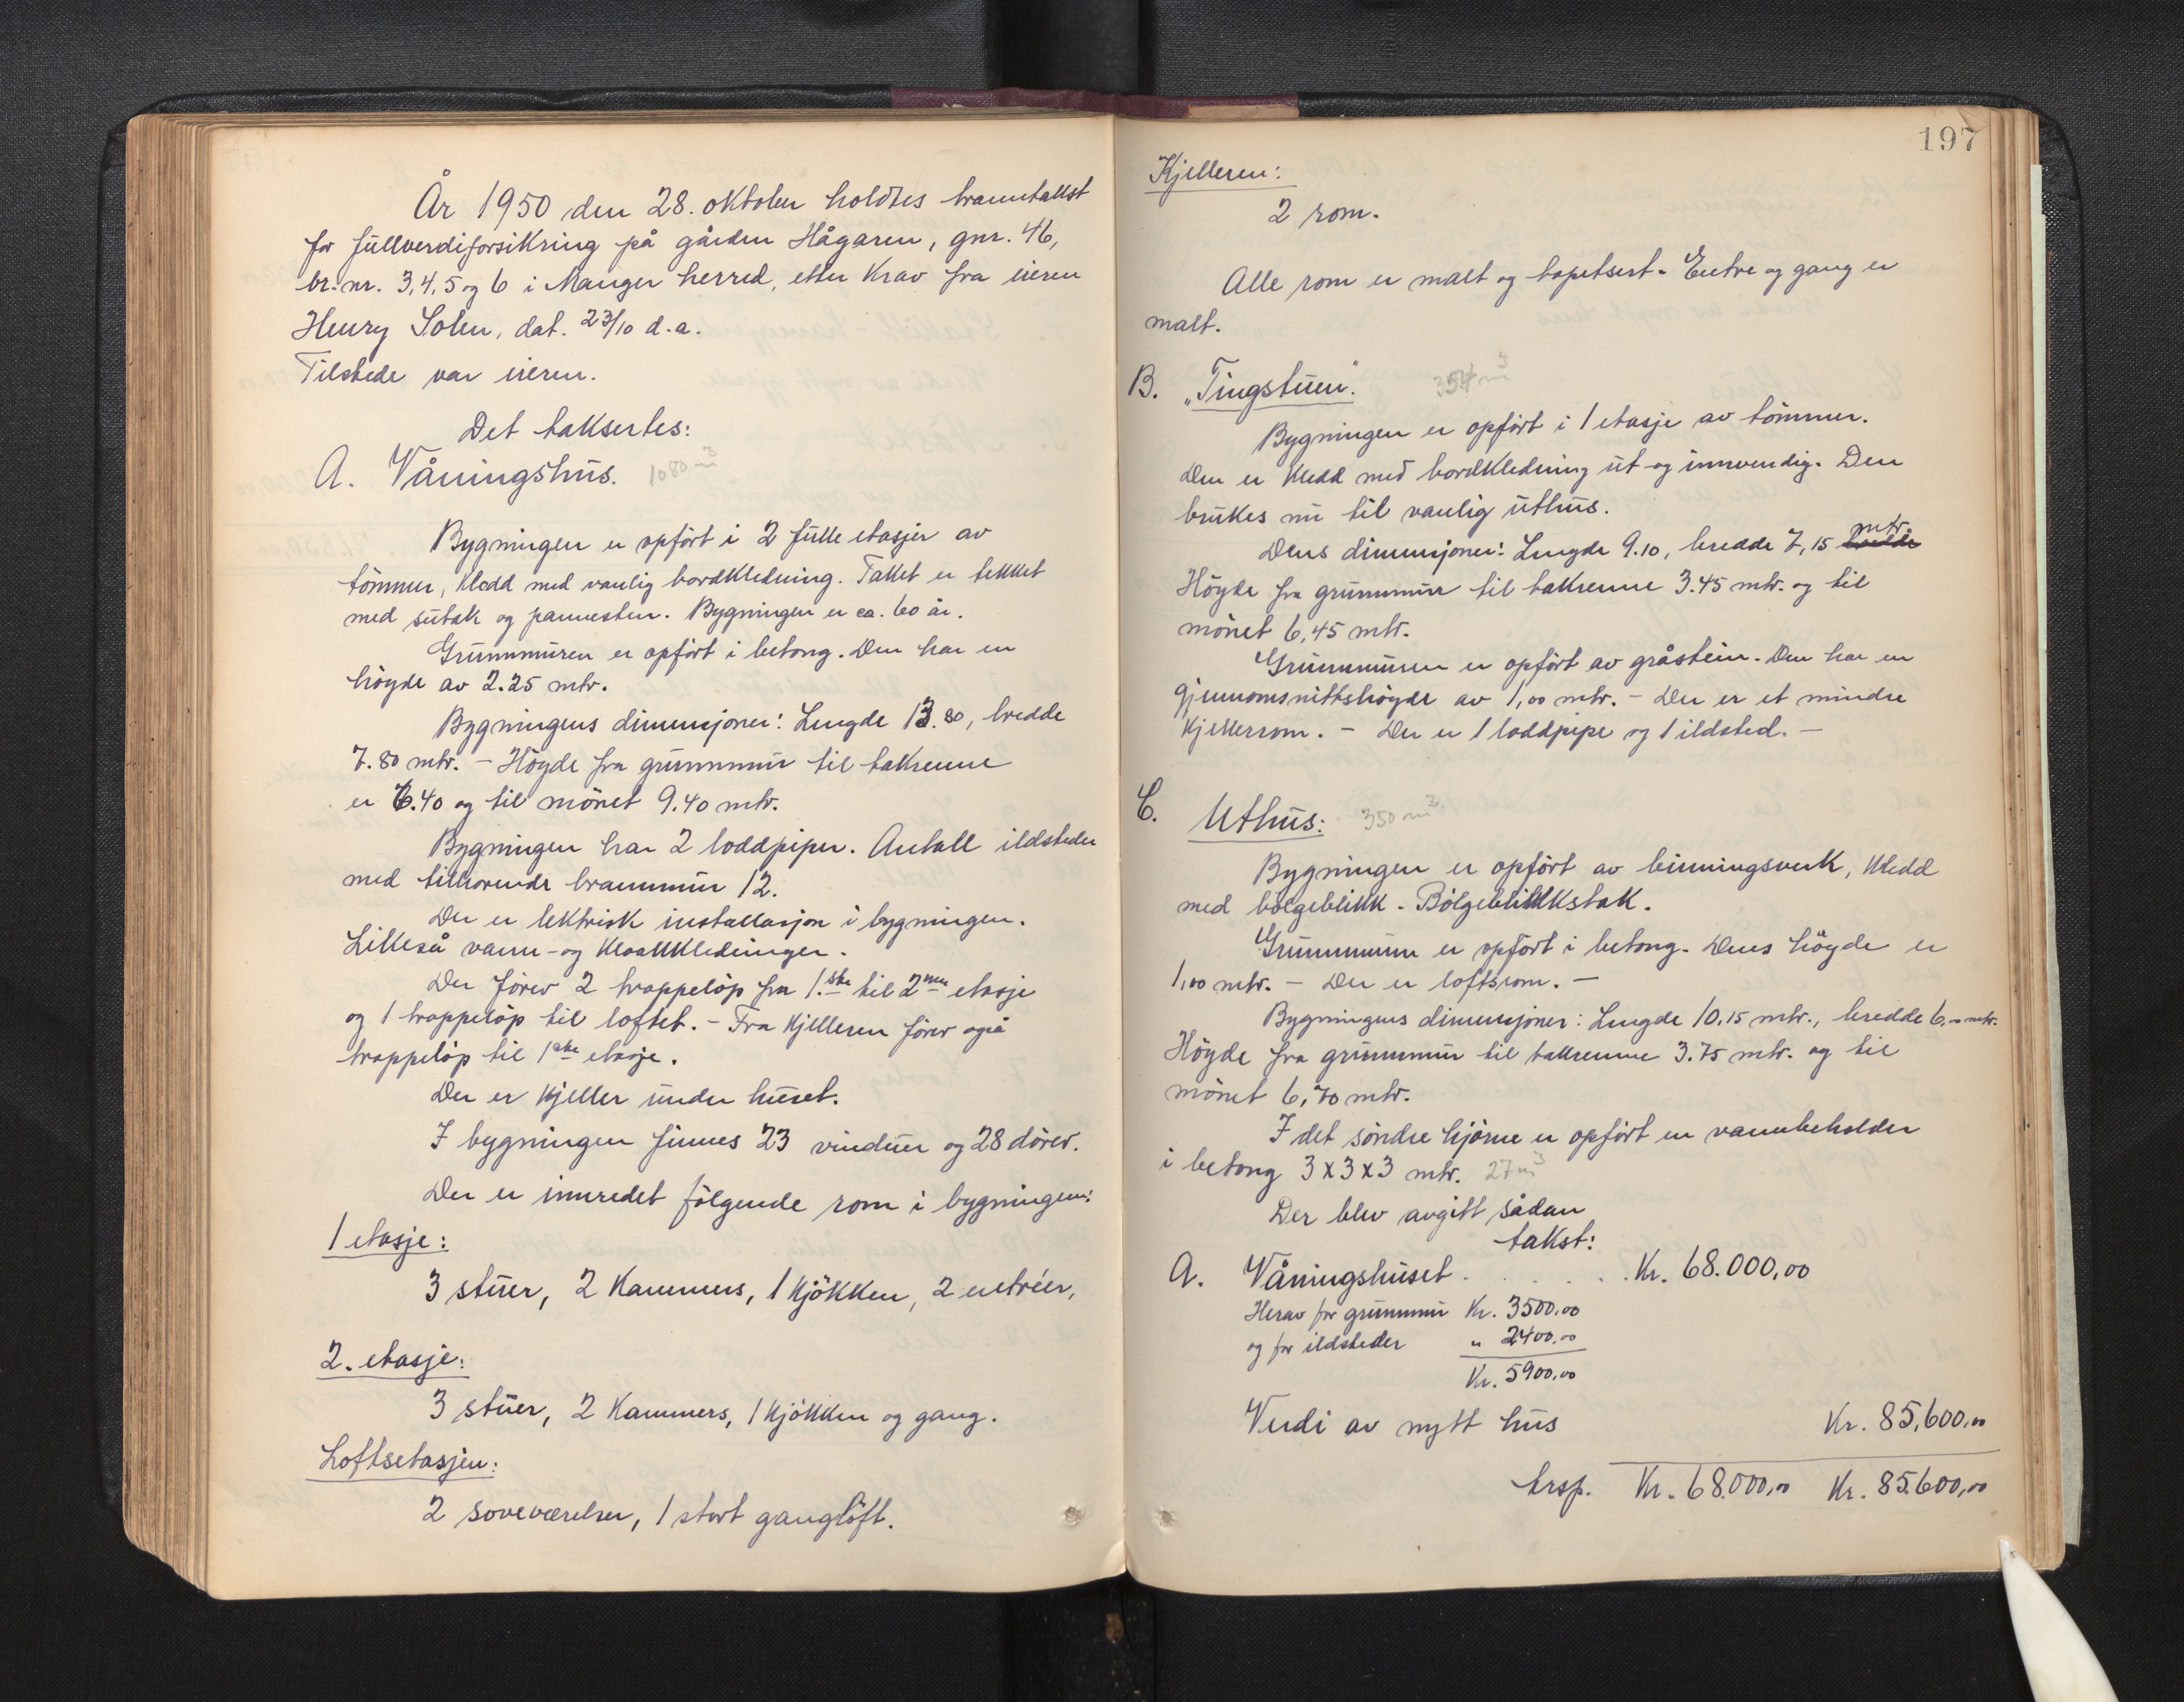 År 1950 den 28. oktober holdtes branntakst
for fullverdiforsikring på gården Hågaren, gnr. 46,
br.nr. 3, 4, 5 og 6 i Manger herred, etter krav fra eieren
Henry Solem, dat. 23/10 d.a.
Tilstede var eieren.
Det taksertes:
A. Våningshus. 1080 m3
Bygningen er opført i 2 fulle etasjer av
tømmer, kledd med vanlig bordkledning. Taket er tekket
med sutak og pannesten. Bygningen er ca. 60 år.
Grunnmuren er opført i betong. Den har en
høyde av 2.25 mtr.
Bygningens dimensjoner: Lengde 13.80, bredde
7.80 mtr. - Høyde fra grunnmur til takrenne
er 6.40 og til mønet 9.40 mtr.
Bygningen har 2 loddpiper. Antall ildsteder
med tilhørende brannmur 12.
Der er lektrisk installasjon i bygningen.
Likeså vann- og kloakkledninger.
Der fører 2 trappeløp fra 1.ste til 2nen etasje
og 1 trappeløp til loftet. - Fra kjelleren fører også
trappeløp til 1ste etasje.
Der er kjeller under huset.
I bygningen finnes 23 vinduer og 28 dører.
Der er innredet følgende rom i bygningen:
1 etasje:
3 stuer, 2 kammers, 1 kjøkken, 2 entréer,
2. etasje:
3 stuer, 2 kammers, 1 kjøkken og gang.
Loftsetasjen:
2 soveværelser, 1 stort gangloft.
197
Kjelleren:
2 rom.
Alle rom er malt og tapetsert. Entre og gang er
malt.
B. „Tingstuen". 354 m3
Bygningen er opført i 1 etasje av tømmer.
Den er kledd med bordkledning ut- og innvendig. Den
brukes nu til vanlig uthus.
Dens dimensjoner: Lengde 9.10, bredde 7,15 mtr.
Høyde fra grunnmur til takrenne 3.45 mtr. og til
mønet 6,45 mtr.
Grunnmuren er opført av gråstein. Den har en
gjennomsnittshøyde av 1,00 mtr. - Der er et mindre
kjellerrom. - Der er 1 loddpipe og 1 ildsted. -
C. Uthus: 350 m3
Bygningen er opført av binningsverk, kledd
med bølgeblikk - Bølgeblikkstak.
Grunnmuren er opført i betong. Dens høyde er
1,00 mtr. - Der er loftsrom. -
Bygningens dimensjoner: Lengde 10,15 mtr., bredde 6,00 mtr.
Høyde fra grunnmur til takrenne 3.75 mtr. og til
mønet 6,70 mtr.
I det søndre hjørne er opført en vannbeholder
i betong 3x3x3 mtr. 27 m3
Der blev avgitt sådan
takst:
A. Våningshuset . . . . . . Kr. 68.000,00
Herav for grunnmur Kr. 3500,00
og for ildsteder " 2400,00
Kr. 5900,00
Verdi av nytt hus Kr. 85,600,00
trsp. Kr. 68.000,00 Kr. 85.600,00